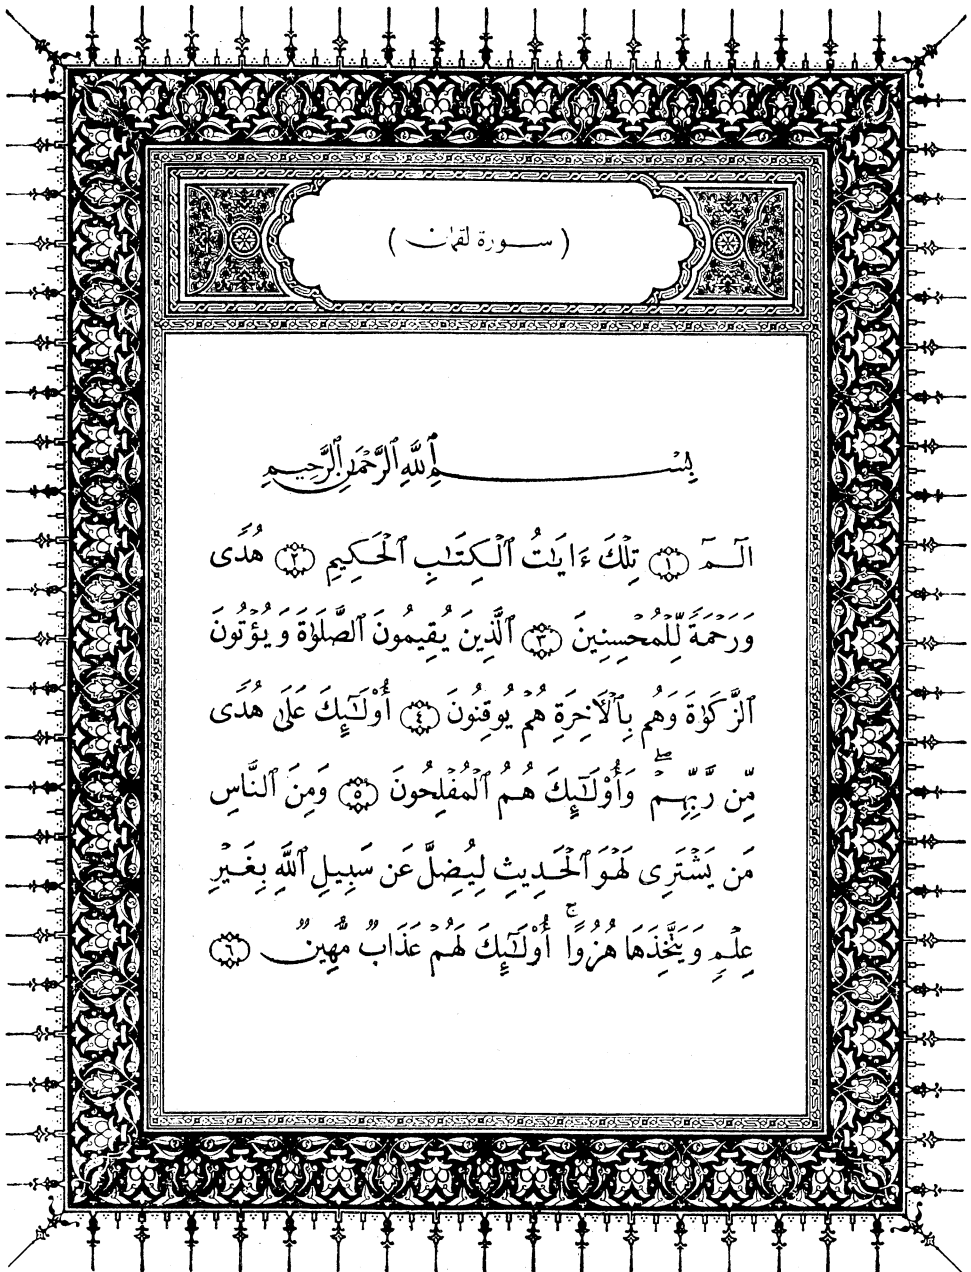 ( سورة لقمان )
بِسْمِ ٱللَّهِ ٱلرَّحْمَٰنِ ٱلرَّحِيمِ
الٓمٓ ١ تِلْكَ ءَايَٰتُ ٱلْكِتَٰبِ ٱلْحَكِيمِ ٢ هُدًى
وَرَحْمَةً لِّلْمُحْسِنِينَ ٣ ٱلَّذِينَ يُقِيمُونَ ٱلصَّلَوٰةَ وَيُؤْتُونَ
ٱلزَّكَوٰةَ وَهُم بِٱلْأٓخِرَةِ هُمْ يُوقِنُونَ ٤ أُوْلَٰٓئِكَ عَلَىٰ هُدًى
مِّن رَّبِّهِمْۖ وَأُوْلَٰٓئِكَ هُمُ ٱلْمُفْلِحُونَ ٥ وَمِنَ ٱلنَّاسِ
مَن يَشْتَرِى لَهْوَ ٱلْحَدِيثِ لِيُضِلَّ عَن سَبِيلِ ٱللَّهِ بِغَيْرِ
عِلْمٍ وَيَتَّخِذَهَا هُزُوًاۚ أُوْلَٰٓئِكَ لَهُمْ عَذَابٌ مُّهِينٌ ٦